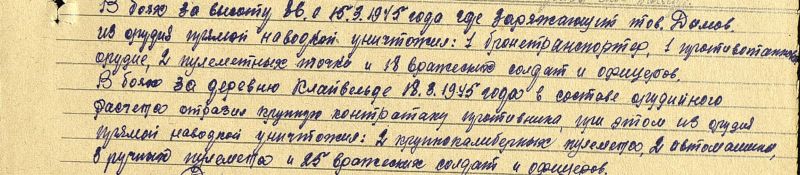 В боях за высоту 86.0 15.3.1945 года где заряжающий тов. Домов.
из орудия прямой наводкой уничтожил: 1 бронетранспортер, 1 противотанковое
орудие, 2 пулеметных точки и 18 вражеских солдат и офицеров.
В боях за деревню Клайвельде 18.3.1945 года в составе орудийного
расчета отразил крупную контратаку противника, при этом из орудия
прямой наводкой уничтожил: 2 крупнокалиберных пулемета, 2 автомашины,
8 ручных пулемета и 25 вражеских солдат и офицеров.